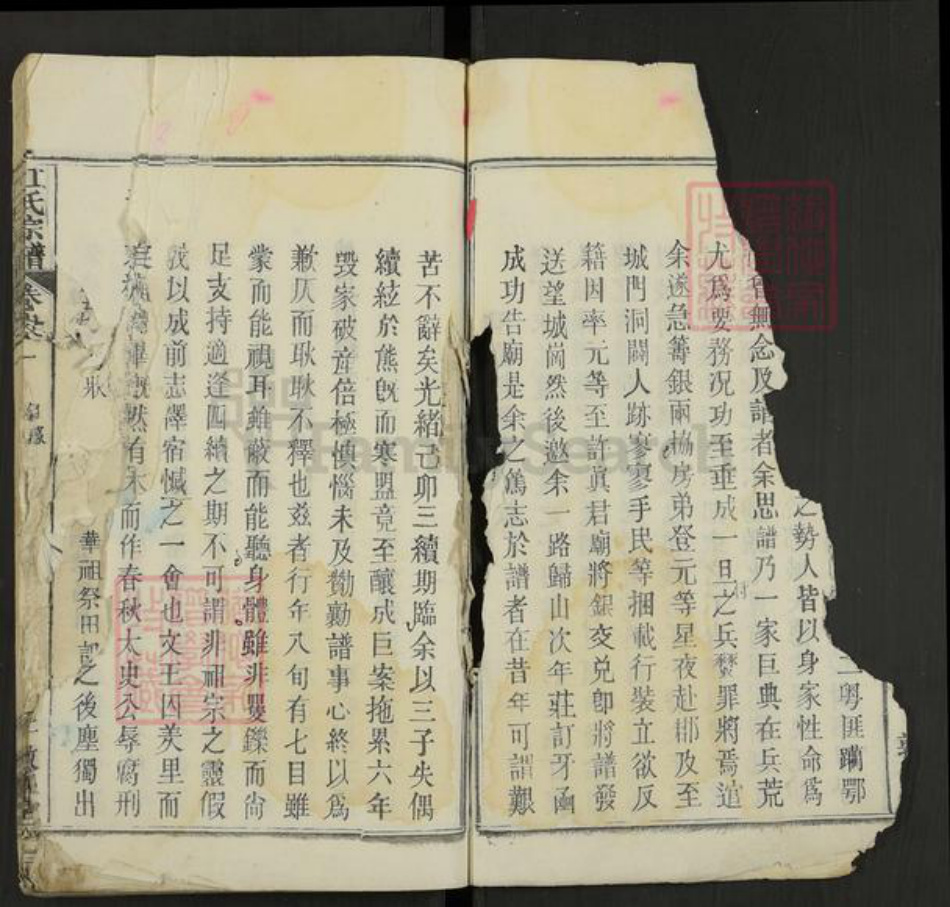 二粵匪躪鄂
之勢人皆以身家性命爲
無念及譜者余思譜乃一家巨典在兵荒
尤爲要務况功至垂成一旦付之兵燹罪將焉逭
余遂急籌銀兩協房弟登元等星夜赴郡及至
城門洞闢人跡寥寥手民等捆載行裝立欲反
籍因率元等至許眞君廟將銀交兌卽將譜發
送望城崗然後邀余一路歸山次年莊訂牙函
成功告廟是余之篤志於譜者在昔年可謂艱
苦不辭矣光緒己卯三續期臨余以三子失偶
續絃於熊旣而寒盟竟至釀成巨案拖累六年
毁家破產倍極懊惱未及勷勷譜事心終以爲
歉仄而耿耿不釋也玆者行年八旬有七目雖
蒙而能視耳雖蔽而能聽身體雖非矍鑠而尙
足支持適逢四續之期不可謂非祖宗之靈假
我以成前志釋宿憾之一會也文王因羑里而
然有未而作春秋太史公辱腐刑
耿
華祖祭田記之後塵獨出
江氏宗譜
卷
一